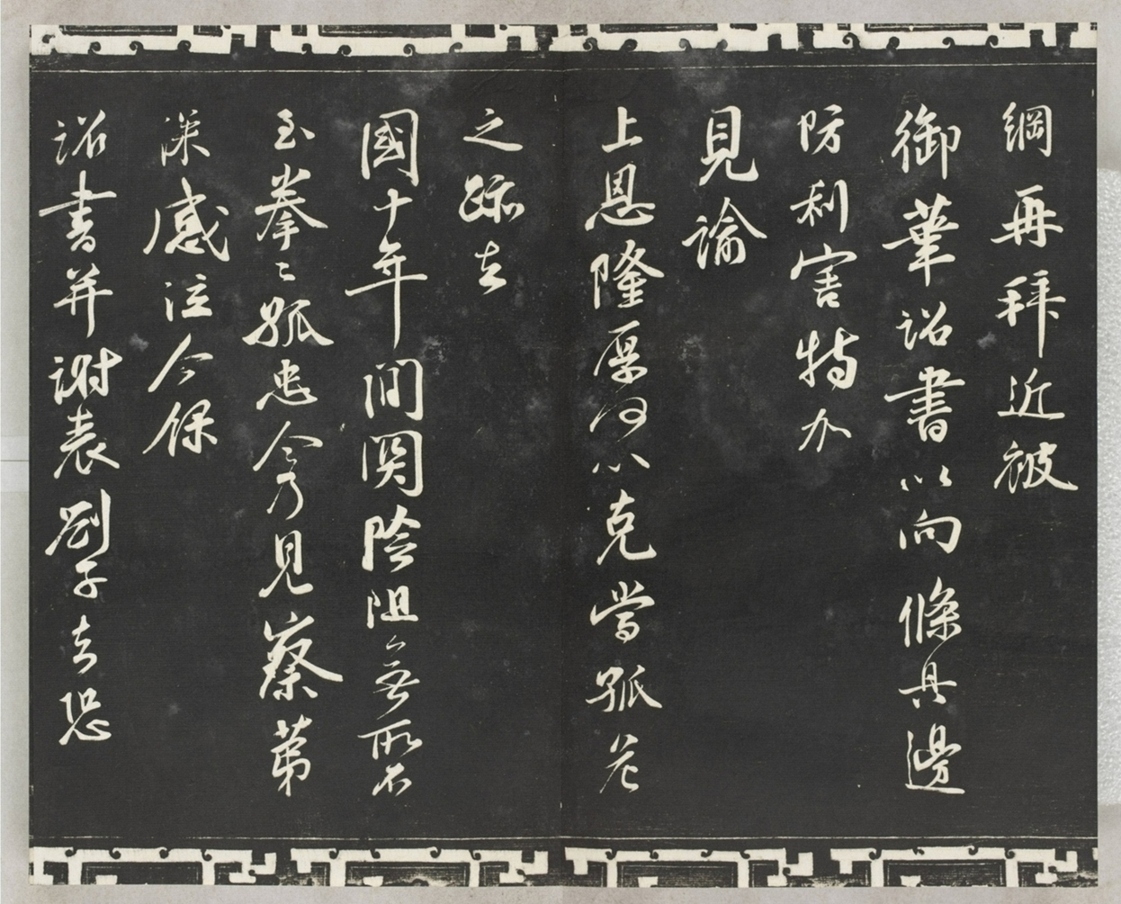 綱再拜近被
御筆詔書以向條具邊
防利害特加
見諭
上恩隆厚何以克當孤危
之跡去
國十年間關險阻無所不
至拳〻孤忠今乃見察第
深感泣今錄
詔書并謝表劄子去恐